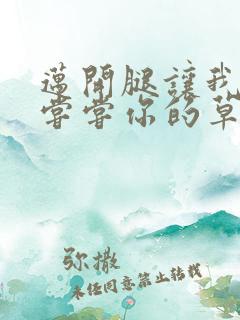 邁開腿讓我
嘗嘗你的草
弥撒
未经同意禁止转载